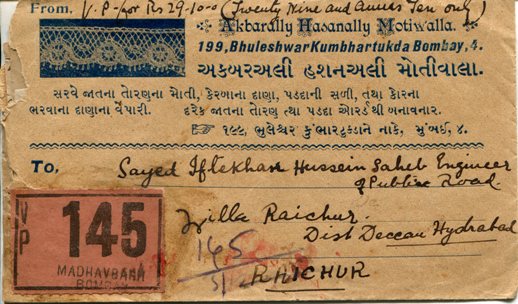 From. V.P. for Rs 29-10-0 (Twenty Nine and annas Ten only)
Akbarally Hasanally Motiwalla.
199, Bhuleshwar Kumbhartukda Bombay, 4.
અકબરઅલી હશનઅલી મોતીવાલા.
સરવે જાતના તોરણના મોતી, કેરબાના દાણા, પડદાની સળી, તથા કોરના
ભરવાના દાણાના વેપારી. દરેક જાતના તોરણ તથા પડદા ઓરડરથી બનાવનાર.
☞ ૧૯૯, ભુલેશ્વર કુંભારટુકડાને નાકે, મુંબઈ, ૪.
To,
Sayed Iftekhar Hussein Saheb Engineer
of Public Road.
Zilla Raichur.
Dist Deccan Hydrabad
RAICHUR
VP 145
MADHAVBAUG
BOMBAY
145